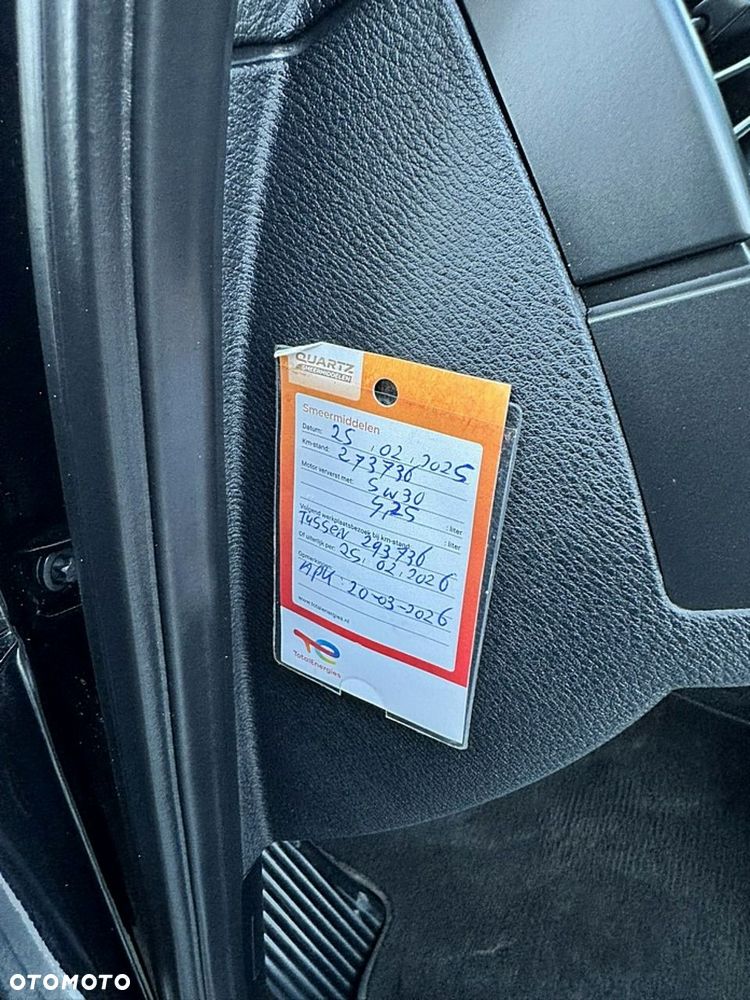 QUARTZ
SMEERMIDDELEN
Smeermiddelen
Datum: 25.02.2025
Km-stand: 273736
Motor ververst met: 5W30
4,25 : liter
: liter
Volgend werkplaatsbezoek bij km-stand:
TUSSEN 293736
Of uiterlijk per: 25.02.2026
APK: 20-03-2026
www.totalenergies.nl
TotalEnergies
OTOMOTO